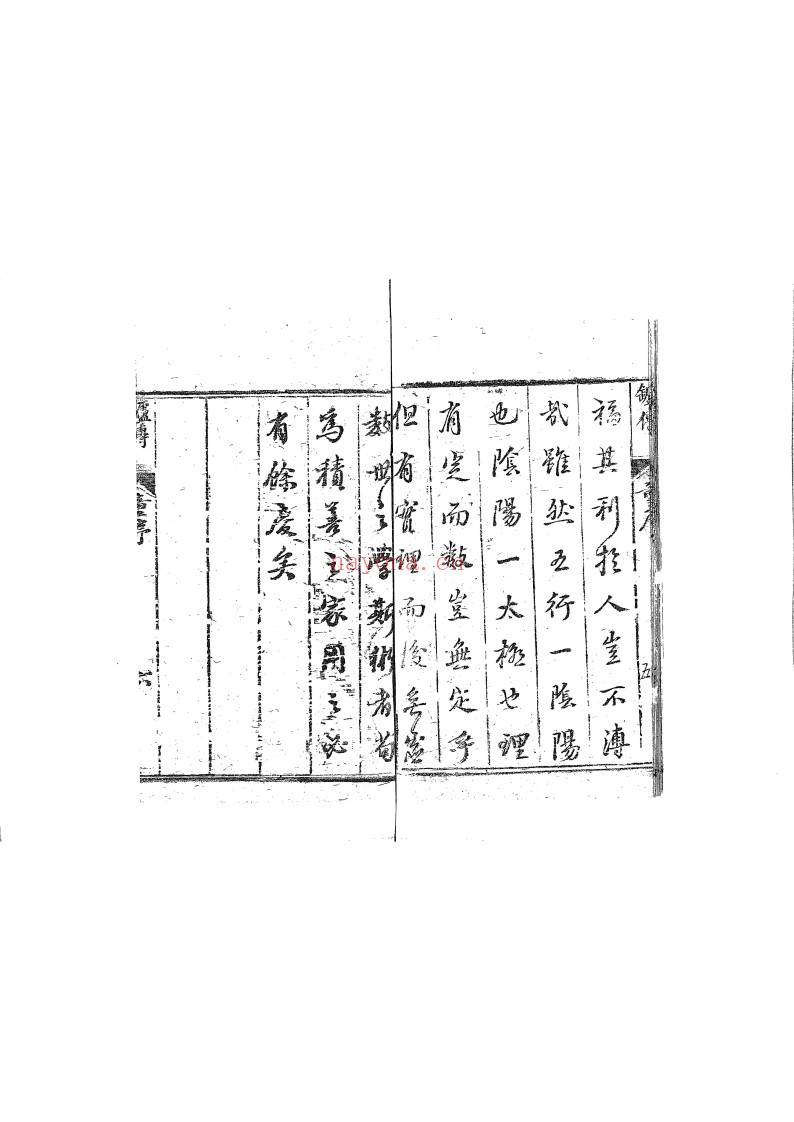 福其利於人豈不溥
哉雖然五行一陰陽
也陰陽一太極也理
有定而數豈無定乎
但有實理而後無虛
數世之學斯術者苟
為積善之家用之必
有餘慶矣
五
六
nayona.cn